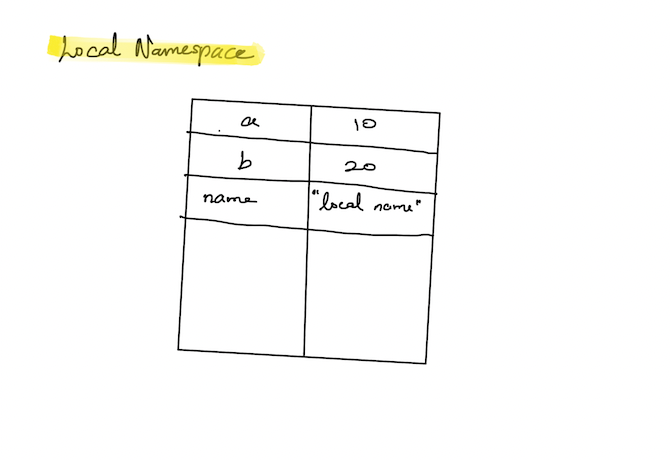 Local Namespace
a 10
b 20
name "local name"